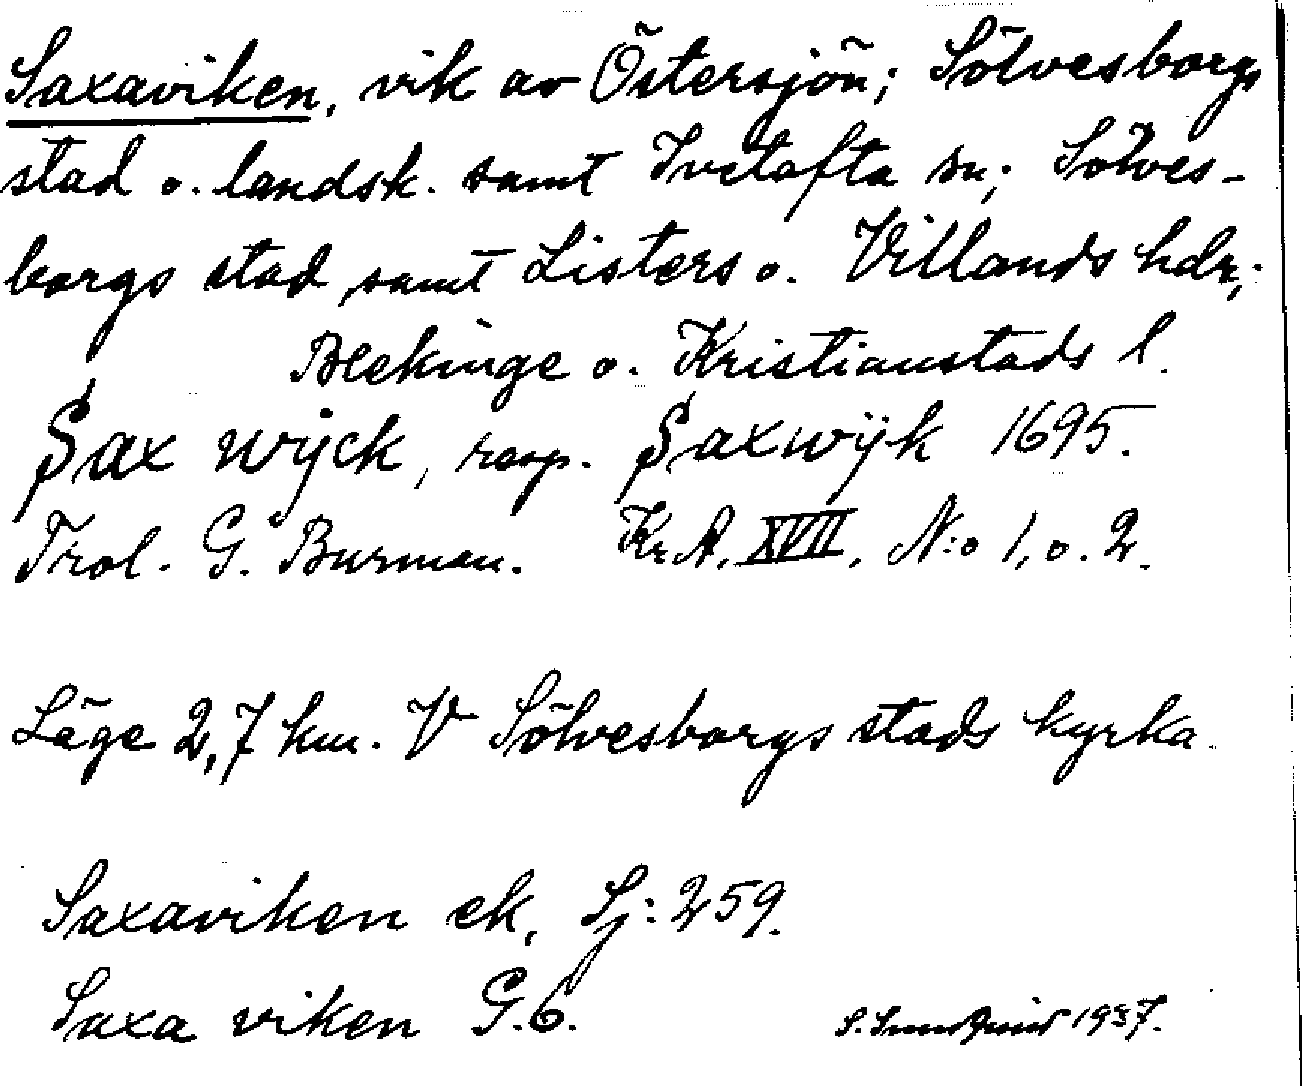 Saxaviken, vik av Östersjön; Sölvesborgs
stad o. landsk. samt Ivetofta sn; Sölves-
borgs stad samt Listers o. Villands hdr;
Blekinge o. Kristianstads l.
Sax wijck, resp. Saxwijk 1695.
Trol. G. Burman. Kr.A. XVII, N:o 1, o. 2.
Läge 2,7 km. V Sölvesborgs stads kyrka.
Saxaviken ek, Sj: 259.
Saxa viken G.6.
S. 1937.